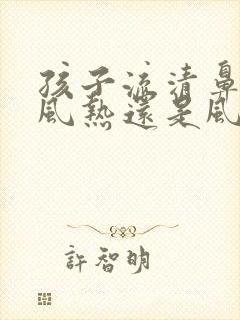 孩子流清鼻
風熱還是風
許智明